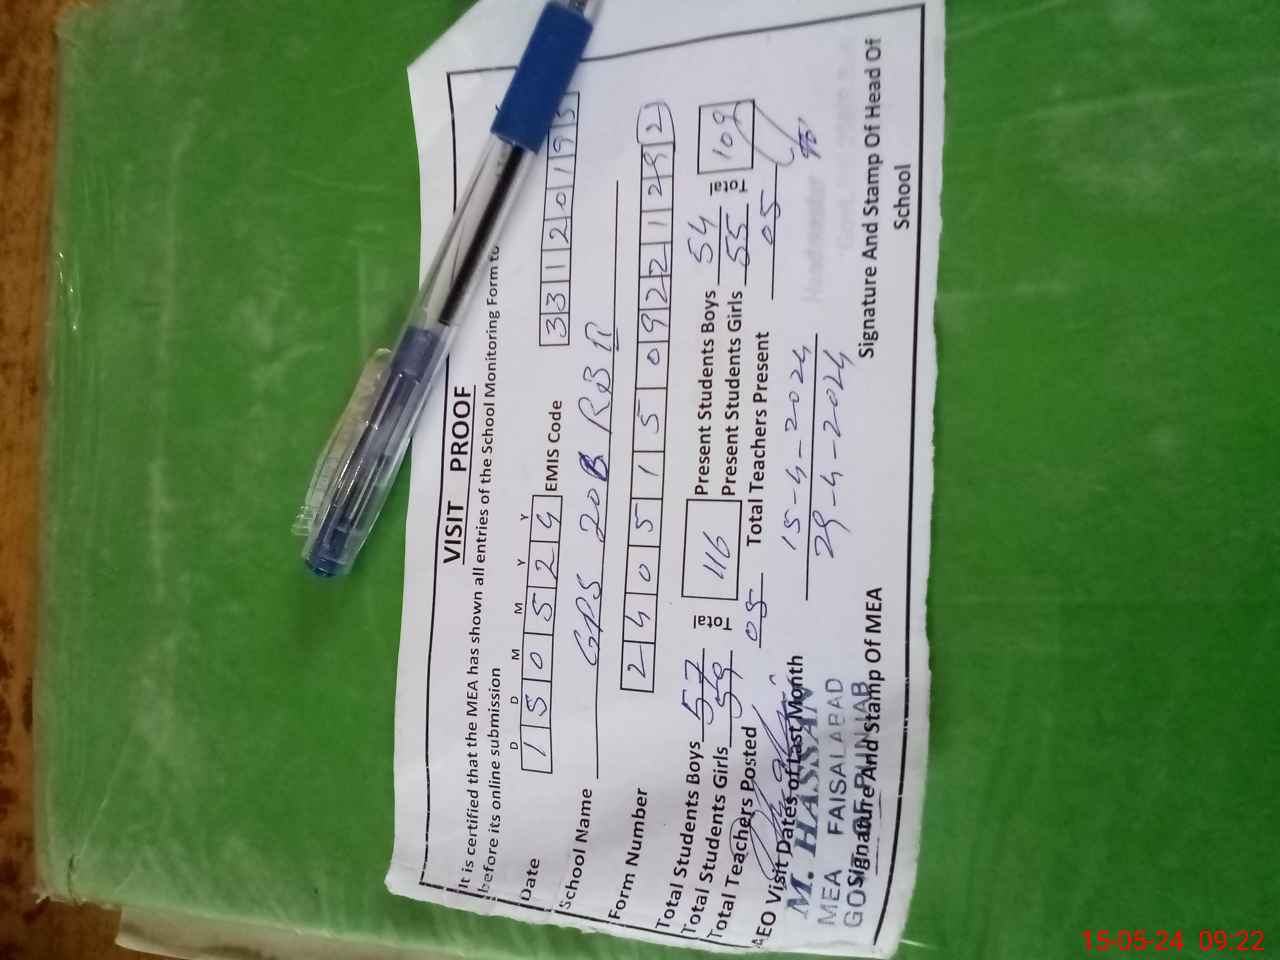 VISIT PROOF
It is certified that the MEA has shown all entries of the School Monitoring Form to
before its online submission
D D M M Y Y
Date 150524 EMIS Code 33120193
School Name GPS 208 RB II
Form Number 24051509221292
Total Students Boys 57 Total 116 Present Students Boys 54 Total 109
Total Students Girls 59 Present Students Girls 55
Total Teachers Posted 05 Total Teachers Present 05
AEO Visit Dates of Last Month 15-4-2024
29-4-2024
M. HASSAN
MEA FAISALABAD
GOVT OF PUNJAB
Signature And Stamp Of MEA
Signature And Stamp Of Head Of
School
15-05-24 09:22